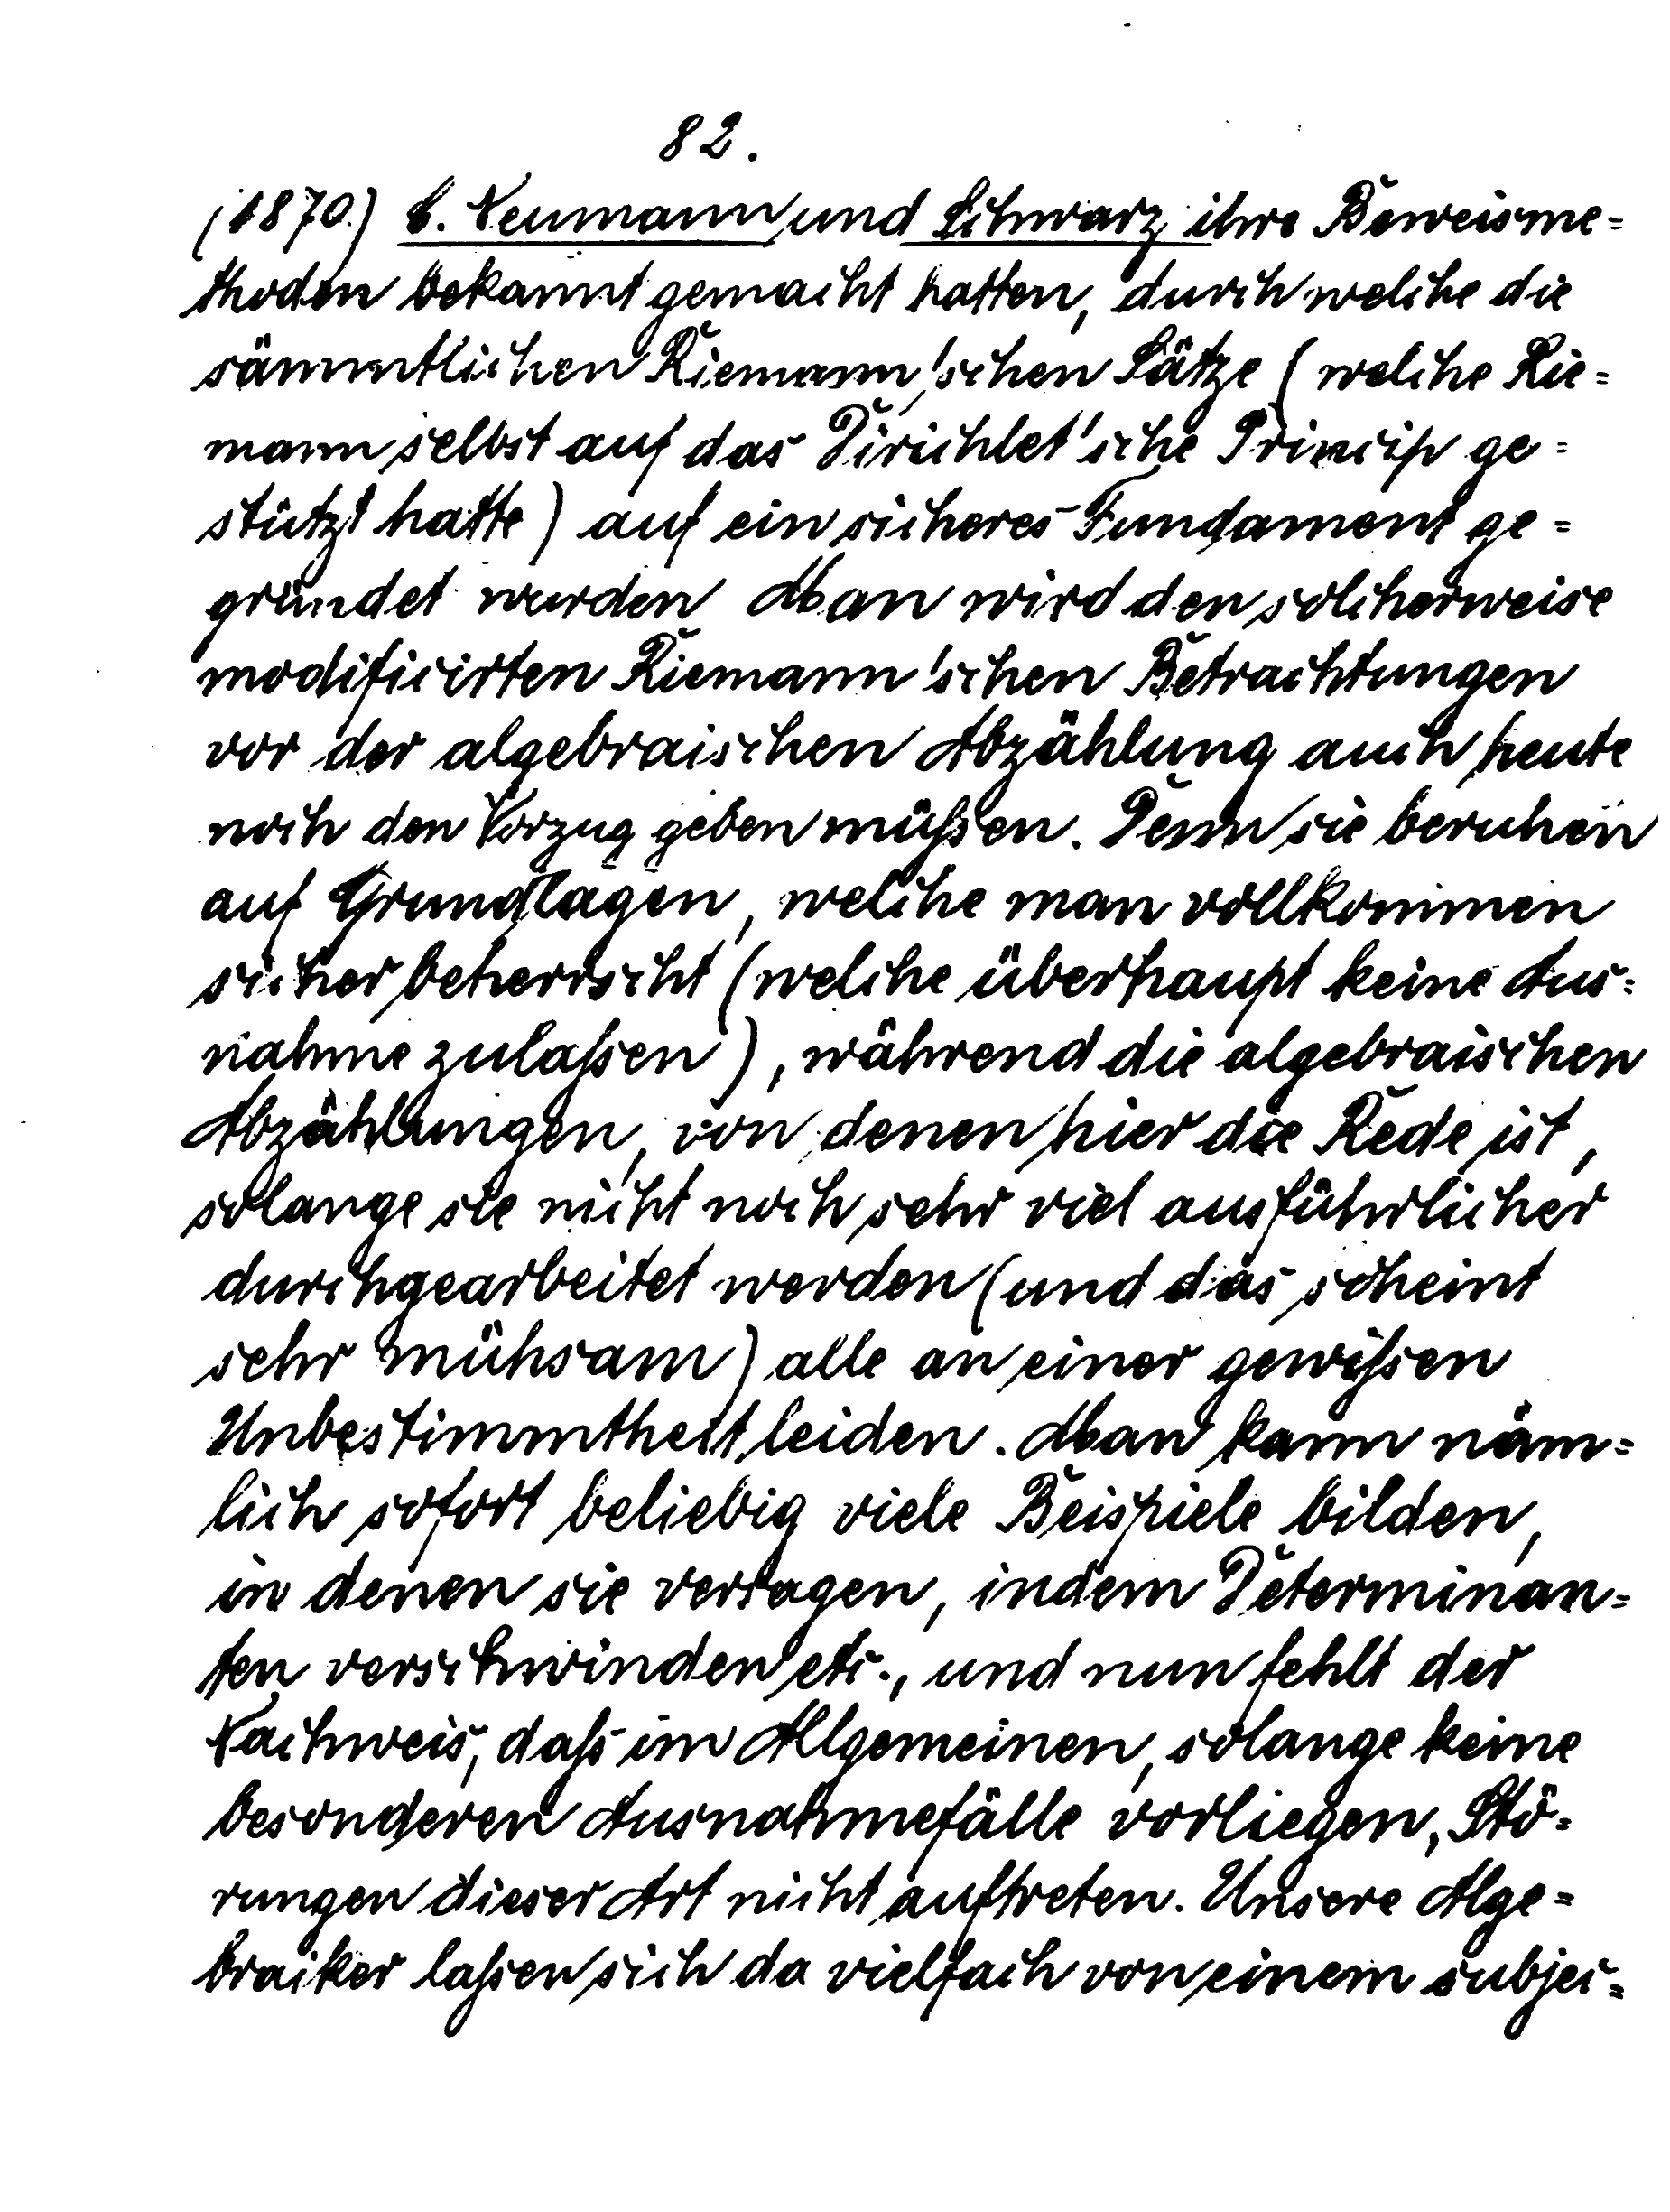 82.
(1870.) C. Neumann und Schwarz ihre Beweisme=
thoden bekannt gemacht hatten, durch welche die
sämmtlichen Riemann'schen Sätze (welche Rie=
mann selbst auf das Dirichlet'sche Princip ge=
stützt hatte) auf ein sicheres Fundament ge=
gründet wurden Man wird den solcherweise
modificirten Riemann'schen Betrachtungen
vor der algebraischen Abzählung auch heute
noch den Vorzug geben müßen. Denn sie beruhen
auf Grundlagen, welche man vollkommen
sicher beherrscht (welche überhaupt keine Aus=
nahme zulaßen), während die algebraischen
Abzählungen, von denen hier die Rede ist,
solange sie nicht noch sehr viel ausführlicher
durchgearbeitet werden (und das scheint
sehr mühsam) alle an einer gewißen
Unbestimmtheit leiden. Man kann näm=
lich sofort beliebig viele Beispiele bilden,
in denen sie versagen, indem Determinan=
ten verschwinden etc., und nun fehlt der
Nachweis, daß im Allgemeinen, solange keine
besonderen Ausnahmefälle vorliegen, Stö=
rungen dieser Art nicht auftreten. Unsere Alge=
braiker laßen sich da vielfach von einem subjec=